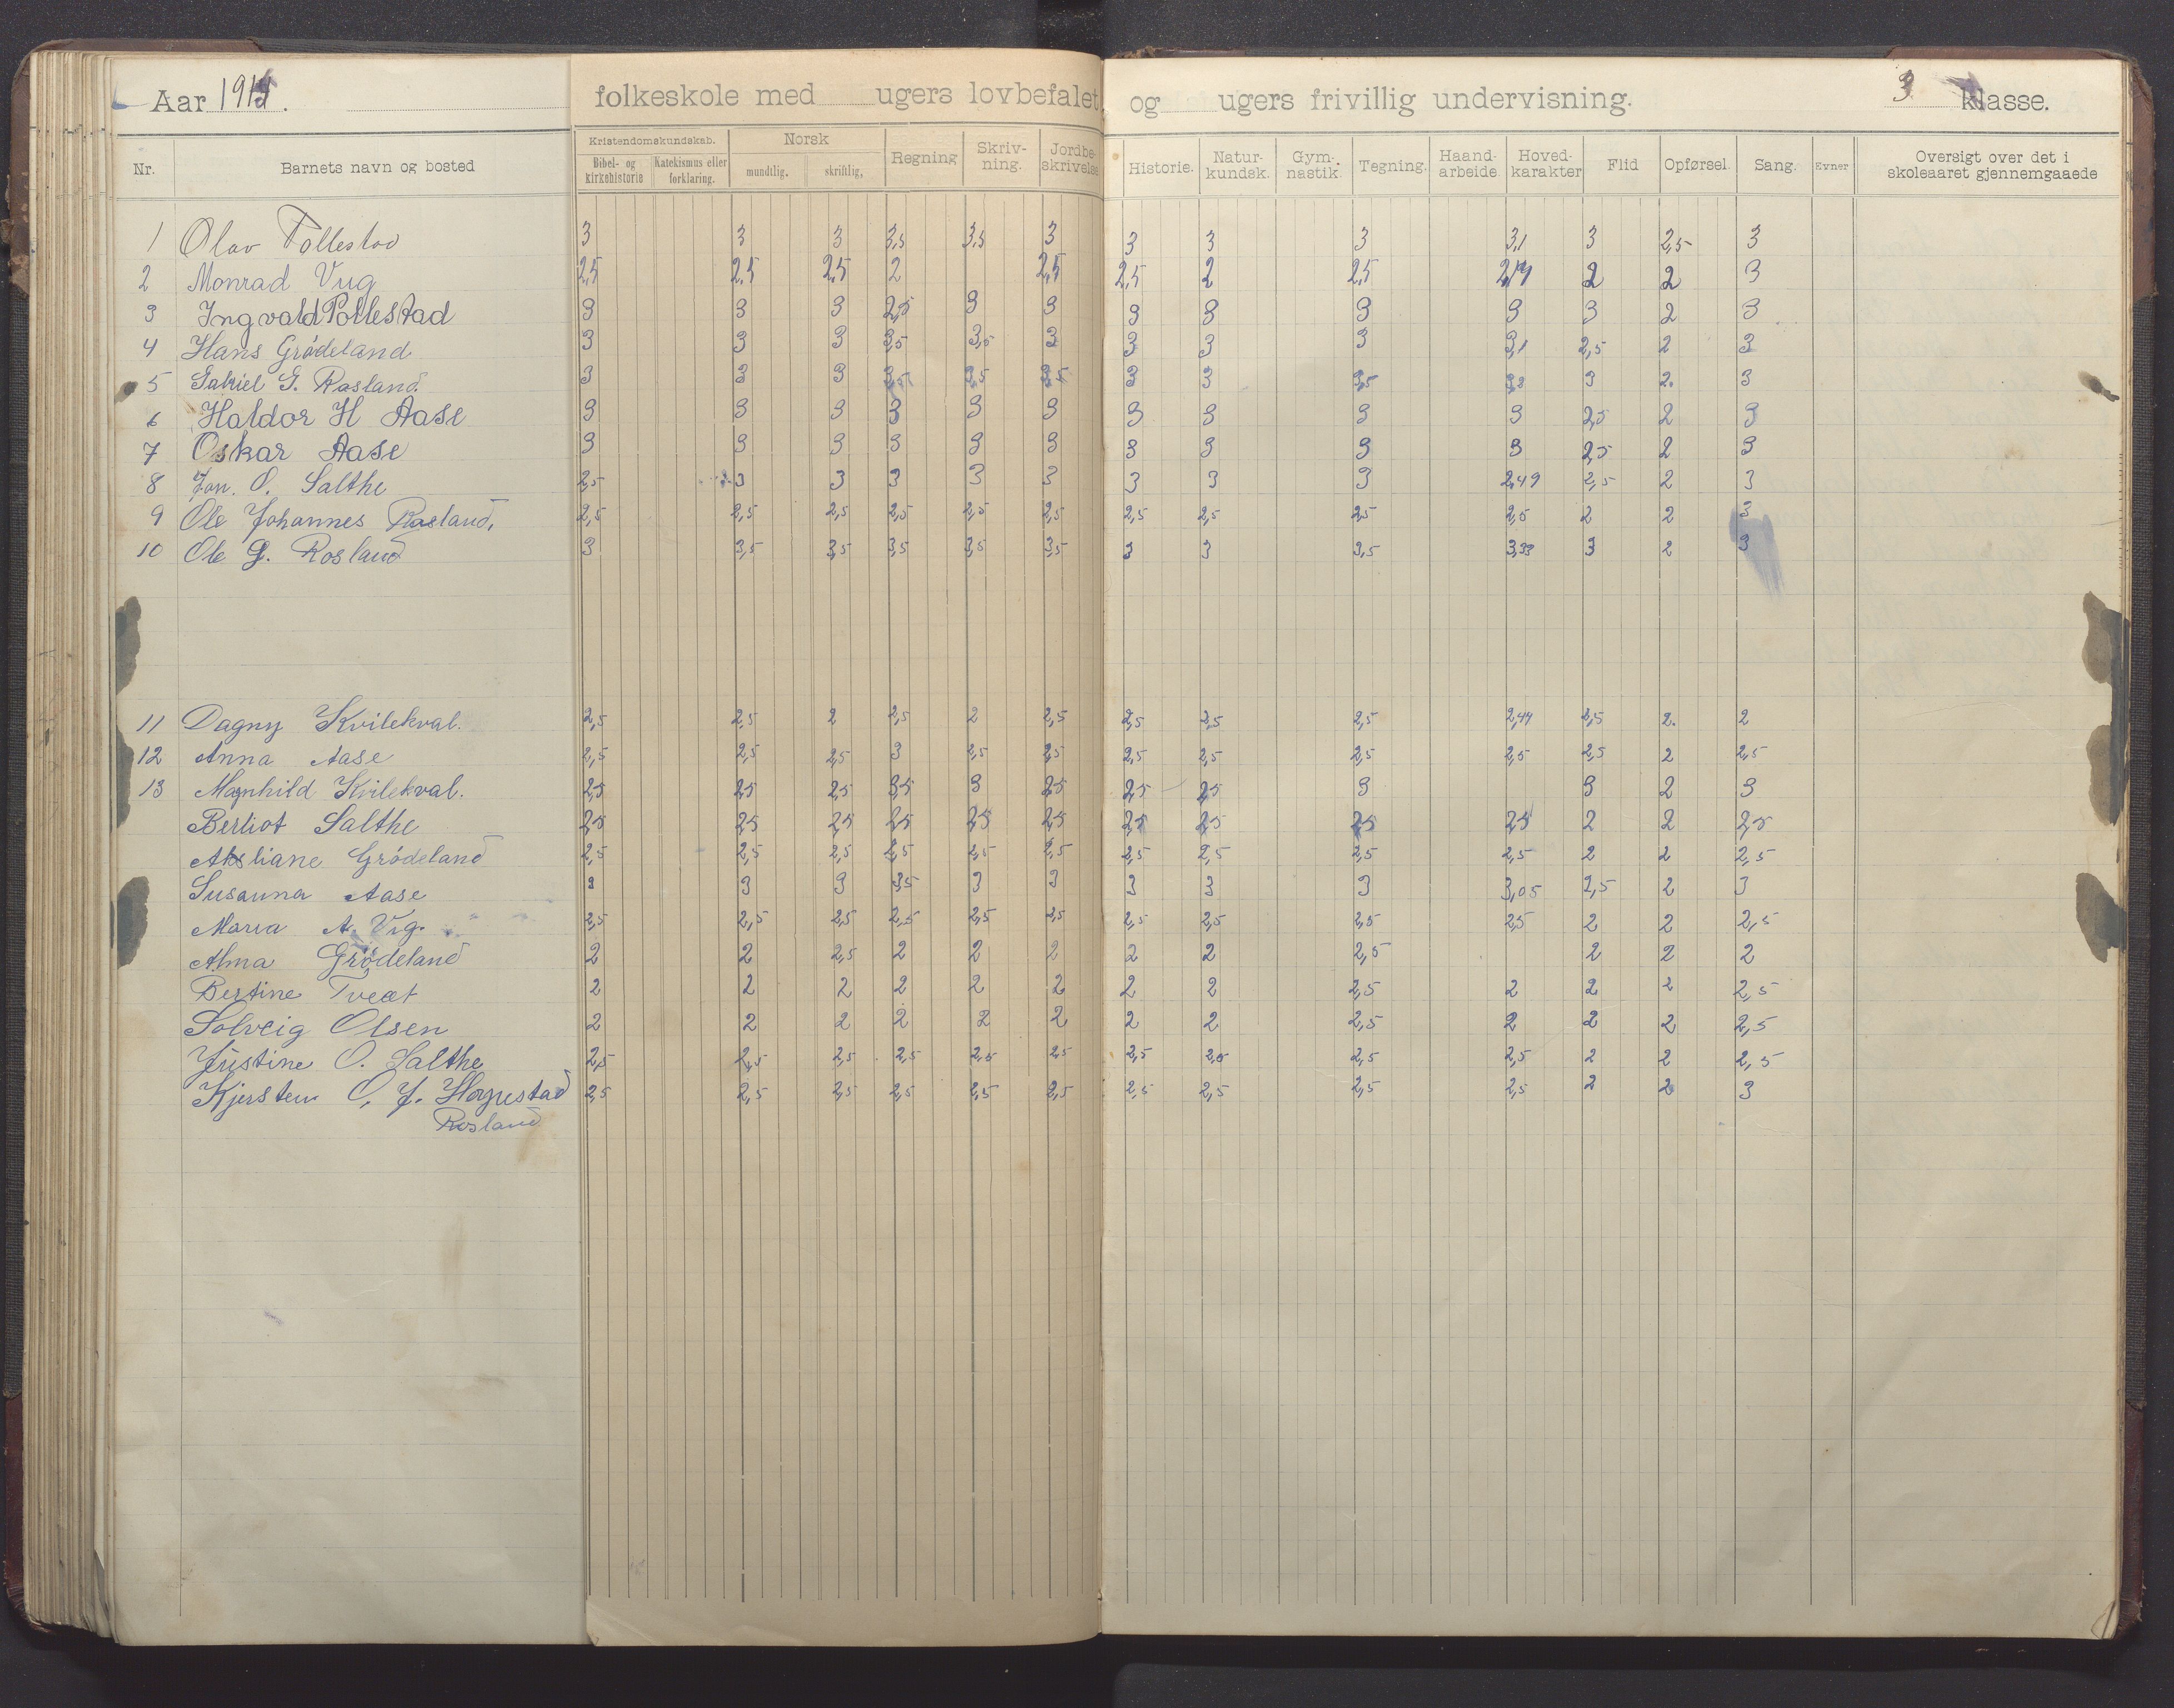 Aar folkeskole med ugers lovbefalet og ugers frivillig undervisning. 3 klasse.
Nr. Barnets navn og bosted Kristendomskundskab. Bibel- og kirkehistorie Katekismus eller forklaring. Norsk mundtlig. skriftlig, Regning Skriv-ning. Jordbe-skrivelse Historie. Natur-kundsk. Gym-nastik. Tegning. Haand-arbeide Hoved-karakter Flid Opførsel. Sang. Evner Oversigt over det i skoleaaret gjennemgaaede
1 Olav 3 3 3 3,5 3,5 3 3 3 3 3,1 3 2,5 3
2 Monrad 2,5 2,5 2,5 2 2,5 2,5 2 2,5 2 2 3
3 Ingvald Pollestad 3 3 3 2,5 3 3 3 3 3 3 3 2 3
4 Hans Grødeland 3 3 3 3,5 3,5 3 3 3 3 3,1 2,5 2 3
5 Gabriel G. Rosland. 3 3 3 3,5 3,5 3,5 3 3 3,5 3 2. 3
6 Haldor H Aase 3 3 3 3 3 3 3 3 3 3 2,5 2 3
7 Oskar Aase 3 3 3 3 3 3 3 3 3 3 2,5 2 3
8 Jon. O. Salthe 2,5 3 3 3 3 3 3 3 3 2,49 2,5 2 3
9 Ole Johannes Rosland, 2,5 2,5 2,5 2,5 2,5 2,5 2,5 2,5 2,5 2,5 2 2 3
10 Ole G. Rosland 3 3,5 3,5 3,5 3,5 3,5 3 3 3,5 3,33 3 2 3
11 Dagny Kvilekval. 2,5 2,5 2 2,5 2 2,5 2,5 2,5 2,5 2,44 2,5 2. 2
12 Anna Aase 2,5 2,5 2,5 3 2,5 2,5 2,5 2,5 2,5 2,5 2,5 2 2,5
13 Magnhild Kvilekval. 2,5 2,5 2,5 3,5 3 2,5 2,5 2,5 3 3 2 3
Berliot Salthe 2,5 2,5 2,5 2,5 2,5 2,5 2,5 2,5 2,5 2,5 2 2 2,5
Aksliane Grødeland 2,5 2,5 2,5 2,5 2,5 2,5 2,5 2,5 2,5 2,5 2 2 2,5
Susanna Aase 3 3 3 3,5 3 3 3 3 3 3,05 2,5 2 3
Maria A. Vig. 2,5 2,5 2,5 2,5 2,5 2,5 2,5 2,5 2,5 2,5 2 2 2,5
Alma Grødeland 2 2 2,5 2 2 2 2 2 2,5 2 2 2
Bertine Tveet 2 2 2 2 2 2 2 2 2,5 2 2 2 2,5
Solveig Olsen 2 2 2 2 2 2 2 2 2,5 2 2 2 2,5
Justine O. Salthe 2,5 2,5 2,5 2,5 2,5 2,5 2,5 2,5 2,5 2,5 2 2 2,5
Kjersten O. J. 2,5 2,5 2,5 2,5 2,5 2,5 2,5 2,5 2,5 2,5 2 2 3
Rosland